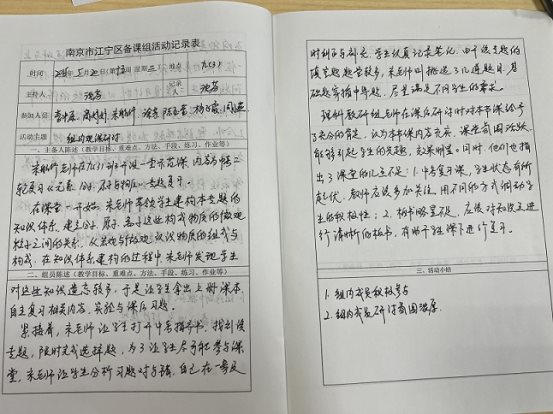 南京市江宁区备课组活动记录表
时间
星期三
地点
九(3)
主持人
记录人
参加人员
活动主题
组内观课研讨
一、主备人陈述（教学目标、重难点、方法、手段、练习、作业等）
朱老师在九(3)班开设一堂示范课，内容为中考二
轮复习《元素、分子、原子与物质》专题复习。
在课堂一开始，朱老师带领学生建构本专题的
知识体系，建立分子、原子、离子这些构成物质的微观
粒子之间的关系，从宏观与微观认识物质的组成与
构成。在知识体系建构的过程中，朱老师发现学生
二、组员陈述（教学目标、重难点、方法、手段、练习、作业等）
对这些知识遗忘较多，于是让学生拿出上册课本，
自主复习相关内容、实验与课后习题。
紧接着，朱老师让学生打开中考指导书，找到该
专题，限时完成选择题，为了让学生尽可能参与课
堂，朱老师让学生分析习题对与错，自己在一旁及
时纠正与补充，学生认真记录笔记。由于该专题的
填空题题量较多，朱老师叫挑选了几道题目，基
础题穿插中等题，尽量满足不同学生的需求。
理科教研组老师在课后研讨时对本节课给予
了充分的肯定，认为本节课内容充实，课堂氛围活跃，
能够引起学生的兴趣，效果明显。同时，他们也指
出了课堂的几点不足：1.中考复习课，学生状态有所
起伏，教师应该多加关注，用不同的方式调动学
生的积极性；2.板书略显不足，应该对知识点进
行清晰的板书，有助于学生课下进行复习。
三、活动小结
1.组内成员积极参与
2.组内成员研讨氛围浓厚.